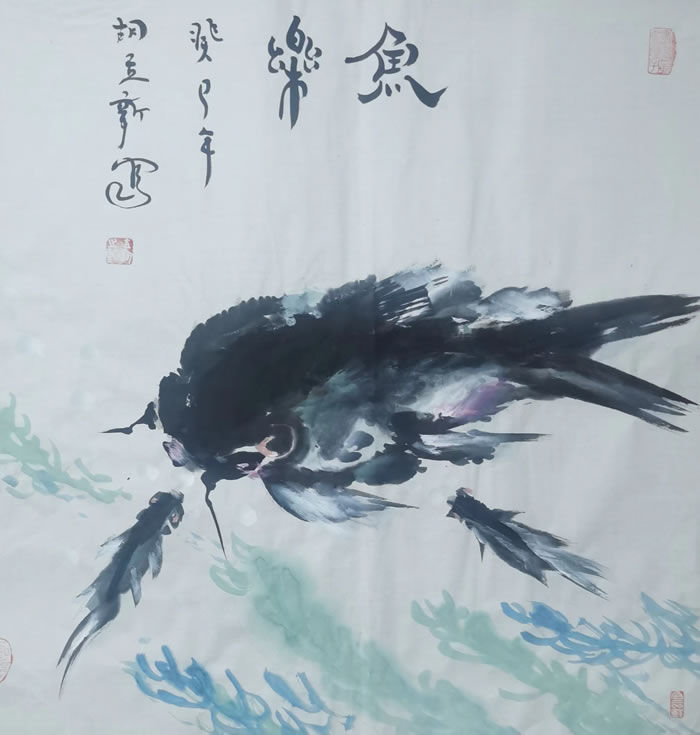 魚樂
癸巳年
胡立新